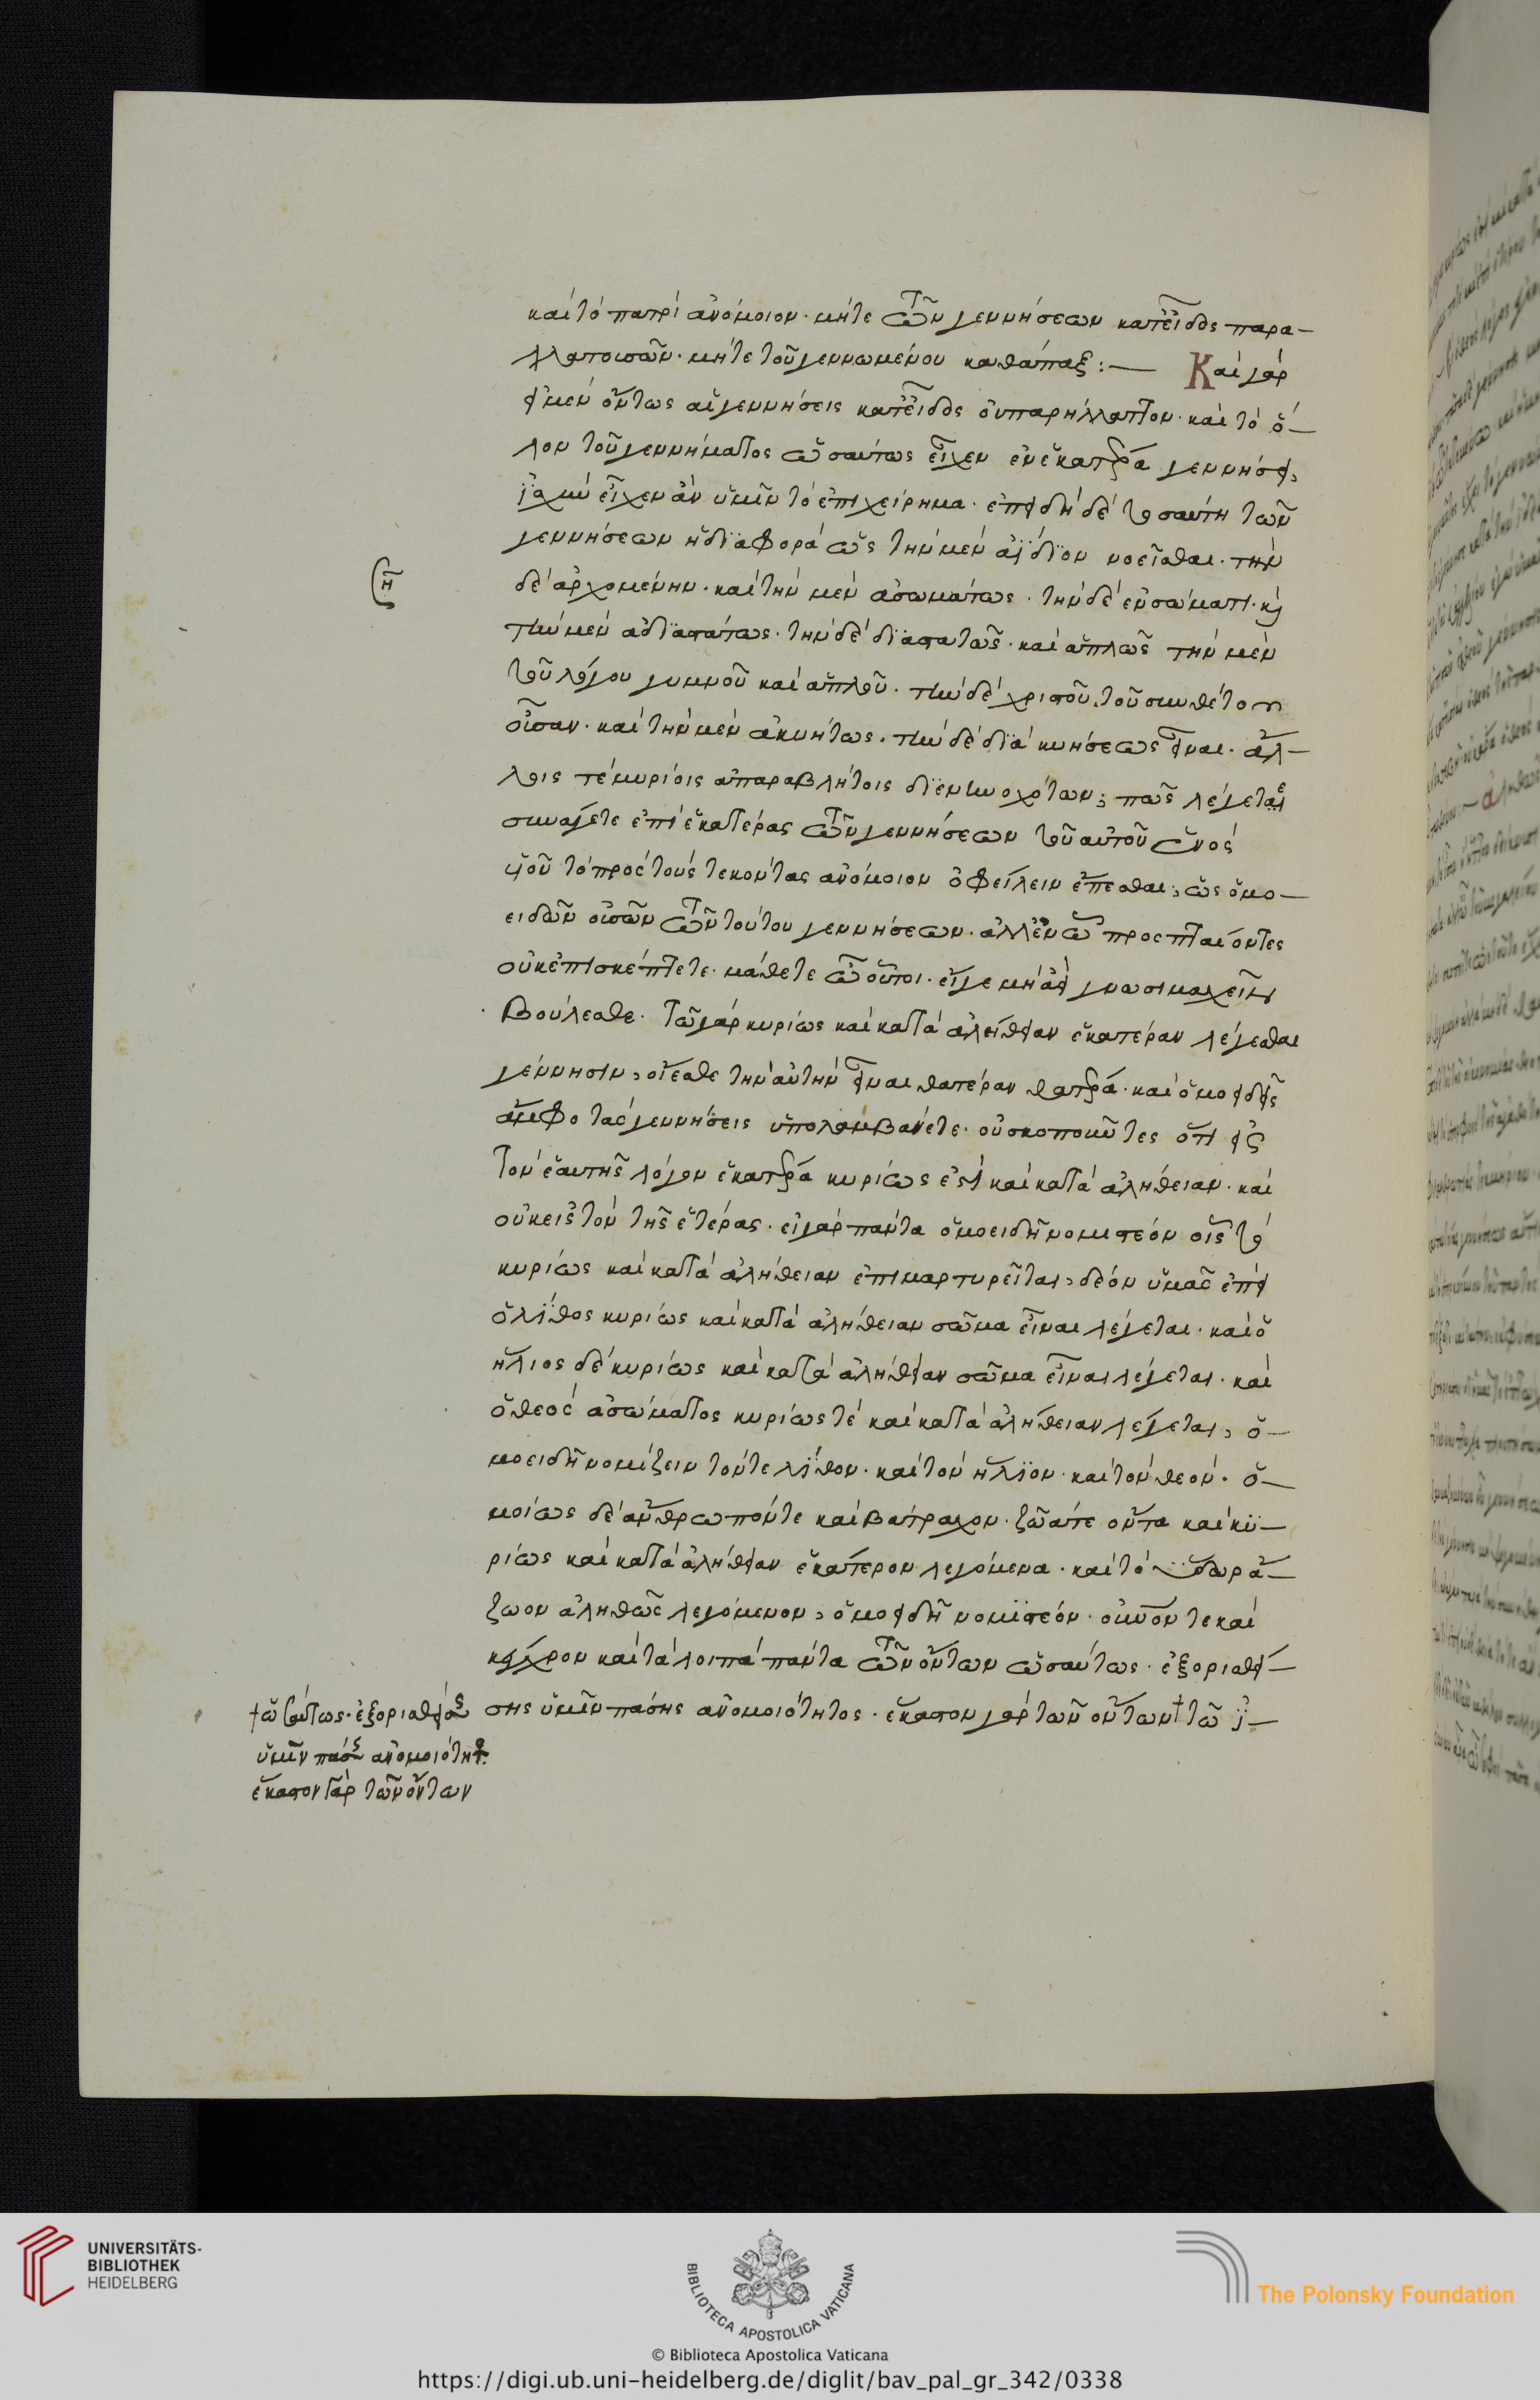 καὶ τὸ πατρὶ ἀνόμοιον· μήτε τῶν γεννήσεων κατ' εἶδος παρα-
λλαττουσῶν· μήτε τοῦ γεννωμένου καθάπαξ :— Καὶ γὰρ
εἰ μὲν ὄντως αἱ γεννήσεις κατ' εἶδος οὐ παρήλλαττον· καὶ τὸ ὅ-
λον τοῦ γεννήματος ὡσαύτως εἶχεν ἐν ἑκατέρα γεννήσει,
εἶχεν ἂν ὑμῖν τὸ ἐπιχείρημα· ἐπειδὴ δὲ τοσαύτη τῶν
γεννήσεων ἡ διαφορὰ ὡς τὴν μὲν ἀΐδιον νοεῖσθαι· τὴν
δὲ ἀρχομένην· καὶ τὴν μὲν ἀσωμάτως· τὴν δὲ ἐν σώματι· καὶ
η
τὴν μὲν ἀδιαστάτως· τὴν δὲ διαστατῶς· καὶ ἁπλῶς τὴν μὲν
τοῦ λόγου γυμνοῦ καὶ ἁπλοῦ· τὴν δὲ χριστοῦ τοῦ συνθέτου
οὖσαν· καὶ τὴν μὲν ἀκινήτως· τὴν δὲ διὰ κινήσεως εἶναι· ἄλ-
λοις τὲ μυρίοις ἀπαραβλήτοις διενηνοχότων, πῶς λέγεται
συνάγετε ἐπὶ ἑκατέρας τῶν γεννήσεων τοῦ αὐτοῦ ἑνὸς
υἱοῦ τὸ πρὸς τοὺς τεκόντας ἀνόμοιον ὀφείλειν ἕπεσθαι, ὡς ὁμο-
ειδῶν οὐσῶν τῶν τούτου γεννήσεων· ἀλλ' ἐν ᾧ προσπταίοντες
οὐκ ἐπισκέπτετε· μάθετε ὦ οὗτοι· εἴγε μὴ ἀεὶ γνωσιμαχεῖν
βούλεσθε· τῶ γὰρ κυρίως καὶ κατὰ ἀλήθειαν ἑκατέραν λέγεσθαι
γέννησιν, οἴεσθε τὴν αὐτὴν εἶναι θατέραν θατέρα· καὶ ὁμοειδεῖς
ἄμφο τὰς γεννήσεις ὑπολαμβάνετε· οὐ σκοποῦντες ὅτι εἰς
τὸν ἑαυτῆς λόγον ἑκατέρα κυρίως ἐστὶ καὶ κατὰ ἀλήθειαν· καὶ
οὐκ εἰς τὸν τῆς ἑτέρας· εἰ γὰρ πάντα ὁμοειδῆ νομιστέον οἷς τὸ
κυρίως καὶ κατὰ ἀλήθειαν ἐπιμαρτυρεῖται, δέον ὑμᾶς ἐπεὶ
ὁ λίθος κυρίως καὶ κατὰ ἀλήθειαν σῶμα εἶναι λέγεται· καὶ ὁ
ἥλιος δὲ κυρίως καὶ κατὰ ἀλήθειαν σῶμα εἶναι λέγεται· καὶ
ὁ θεὸς ἀσώματος κυρίως τὲ καὶ κατὰ ἀλήθειαν λέγεται, ὁ-
μοειδῆ νομίζειν τόντε λίθον· καὶ τὸν ἥλιον· καὶ τὸν θεόν· ὁ-
μοίως δὲ ἄνθρωπόν τε καὶ βάτραχον· ζῶα τε ὄντα καὶ κυ-
ρίως καὶ κατὰ ἀλήθειαν ἑκάτερον λεγόμενα· καὶ τὸ ὕδωρ ἄ-
ζωον ἀληθῶς λεγόμενον, ὁμοειδῆ νομιστέον· οἶνον τε καὶ
κέγχρον καὶ τὰ λοιπὰ πάντα τῶν ὄντων ὡσαύτως· ἐξορισθεί-
σης ὑμῖν πάσης ἀνομοιότητος· ἕκαστον γὰρ τῶν ὄντων † τῶ ἰ-
† ὡσαύτως· ἐξορισθείσης
ὑμῖν πάσης ἀνομοιότητος
ἕκαστον γὰρ τῶν ὄντων
UNIVERSITÄTS-
BIBLIOTHEK
HEIDELBERG
BIBLIOTECA APOSTOLICA VATICANA
The Polonsky Foundation
© Biblioteca Apostolica Vaticana
https://digi.ub.uni-heidelberg.de/diglit/bav_pal_gr_342/0338